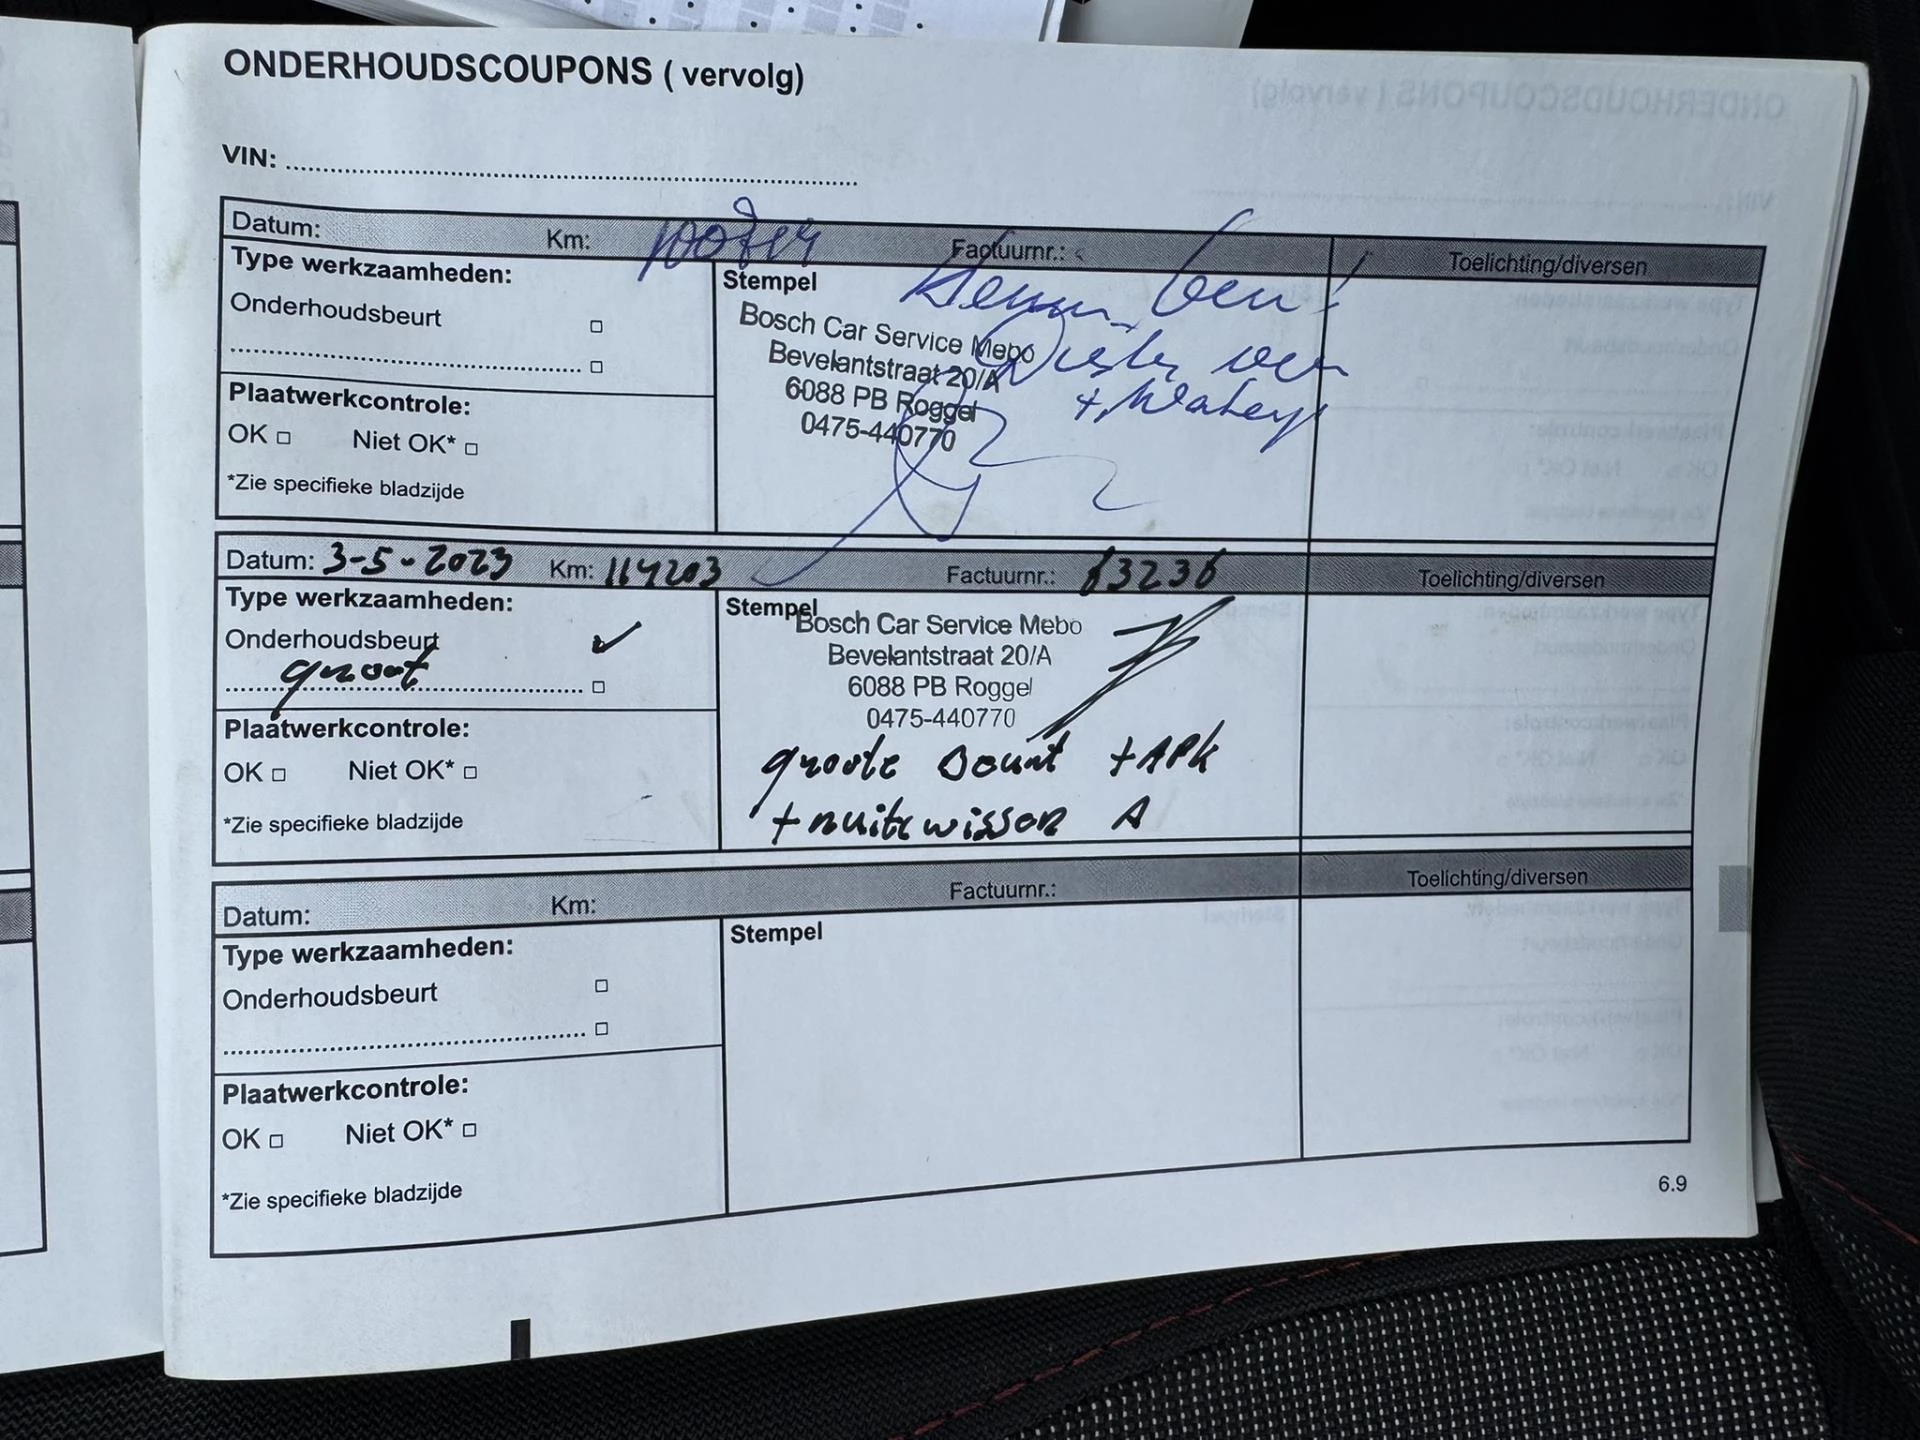 ONDERHOUDSCOUPONS ( vervolg)
VIN:
Datum: Km: Factuurnr.: Toelichting/diversen
Type werkzaamheden:
Onderhoudsbeurt
Plaatwerkcontrole:
OK Niet OK*
*Zie specifieke bladzijde
Stempel
Bosch Car Service Mebo
Bevelantstraat 20/A
6088 PB Roggel
0475-440770
Datum: 3-5-2023 Km: 114203 Factuurnr.: 83236 Toelichting/diversen
Type werkzaamheden:
Onderhoudsbeurt
groot
Plaatwerkcontrole:
OK Niet OK*
*Zie specifieke bladzijde
Stempel
Bosch Car Service Mebo
Bevelantstraat 20/A
6088 PB Roggel
0475-440770
groote beurt + APK
+ ruitewisser A
Datum: Km: Factuurnr.: Toelichting/diversen
Type werkzaamheden:
Onderhoudsbeurt
Plaatwerkcontrole:
OK Niet OK*
*Zie specifieke bladzijde
Stempel
6.9